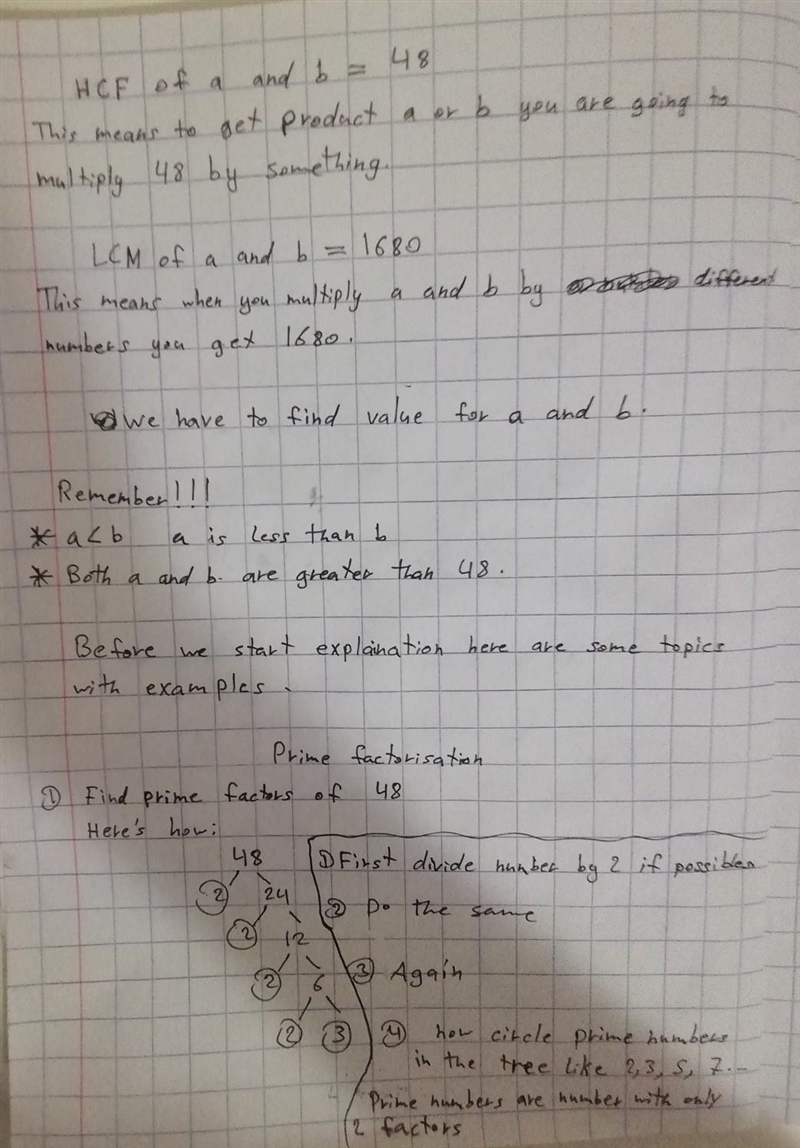 HCF of a and b = 48
This means to get product a or b you are going to
multiply 48 by something.
LCM of a and b = 1680
This means when you multiply a and b by different
numbers you get 1680.
We have to find value for a and b.
Remember!!!
* a < b a is less than b
* Both a and b. are greater than 48.
Before we start explaination here are some topics
with examples.
Prime factorisation
① Find prime factors of 48
Here's how:
48
2 24
2 12
2 6
2 3
① First divide number by 2 if possible
② Do the same
③ Again
④ now circle prime numbers
in the tree like 2, 3, 5, 7...
Prime numbers are number with only
2 factors